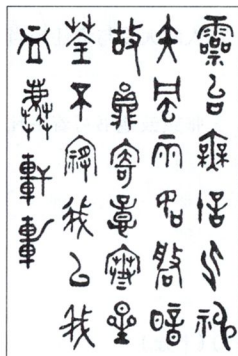 靈台無計逃神
矢風雨如磐暗
故園寄意寒星
荃不察我以我
血薦軒轅